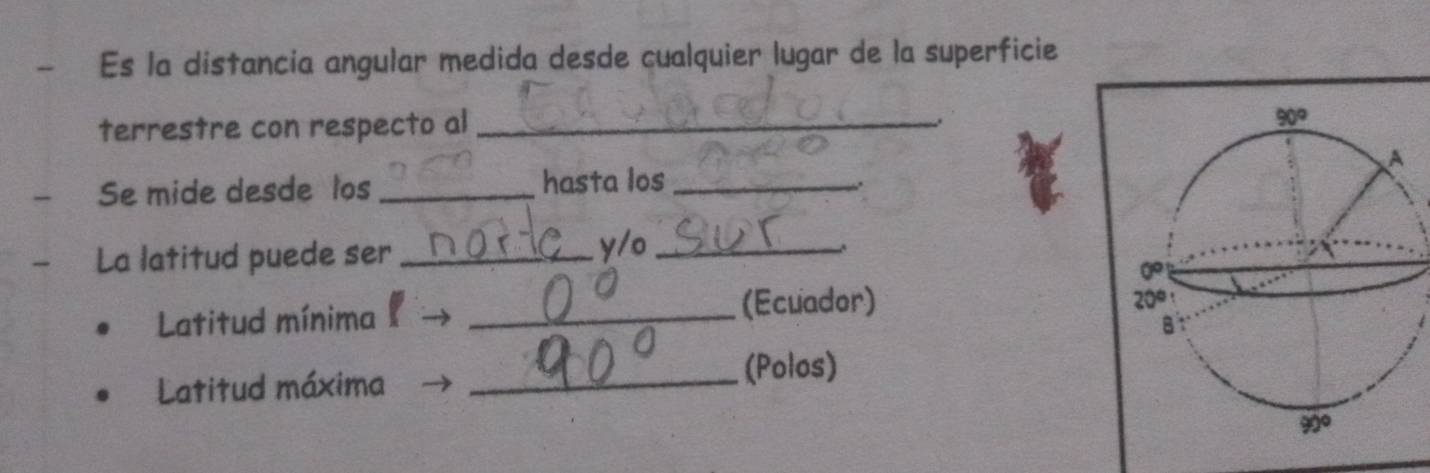 - Es la distancia angular medida desde cualquier lugar de la superficie
terrestre con respecto al Ecuador.
- Se mide desde los 0° hasta los 90°.
- La latitud puede ser norte y/o sur.
• Latitud mínima → 0° (Ecuador)
• Latitud máxima → 90° (Polos)
90°
A
0°
20°
B
90°